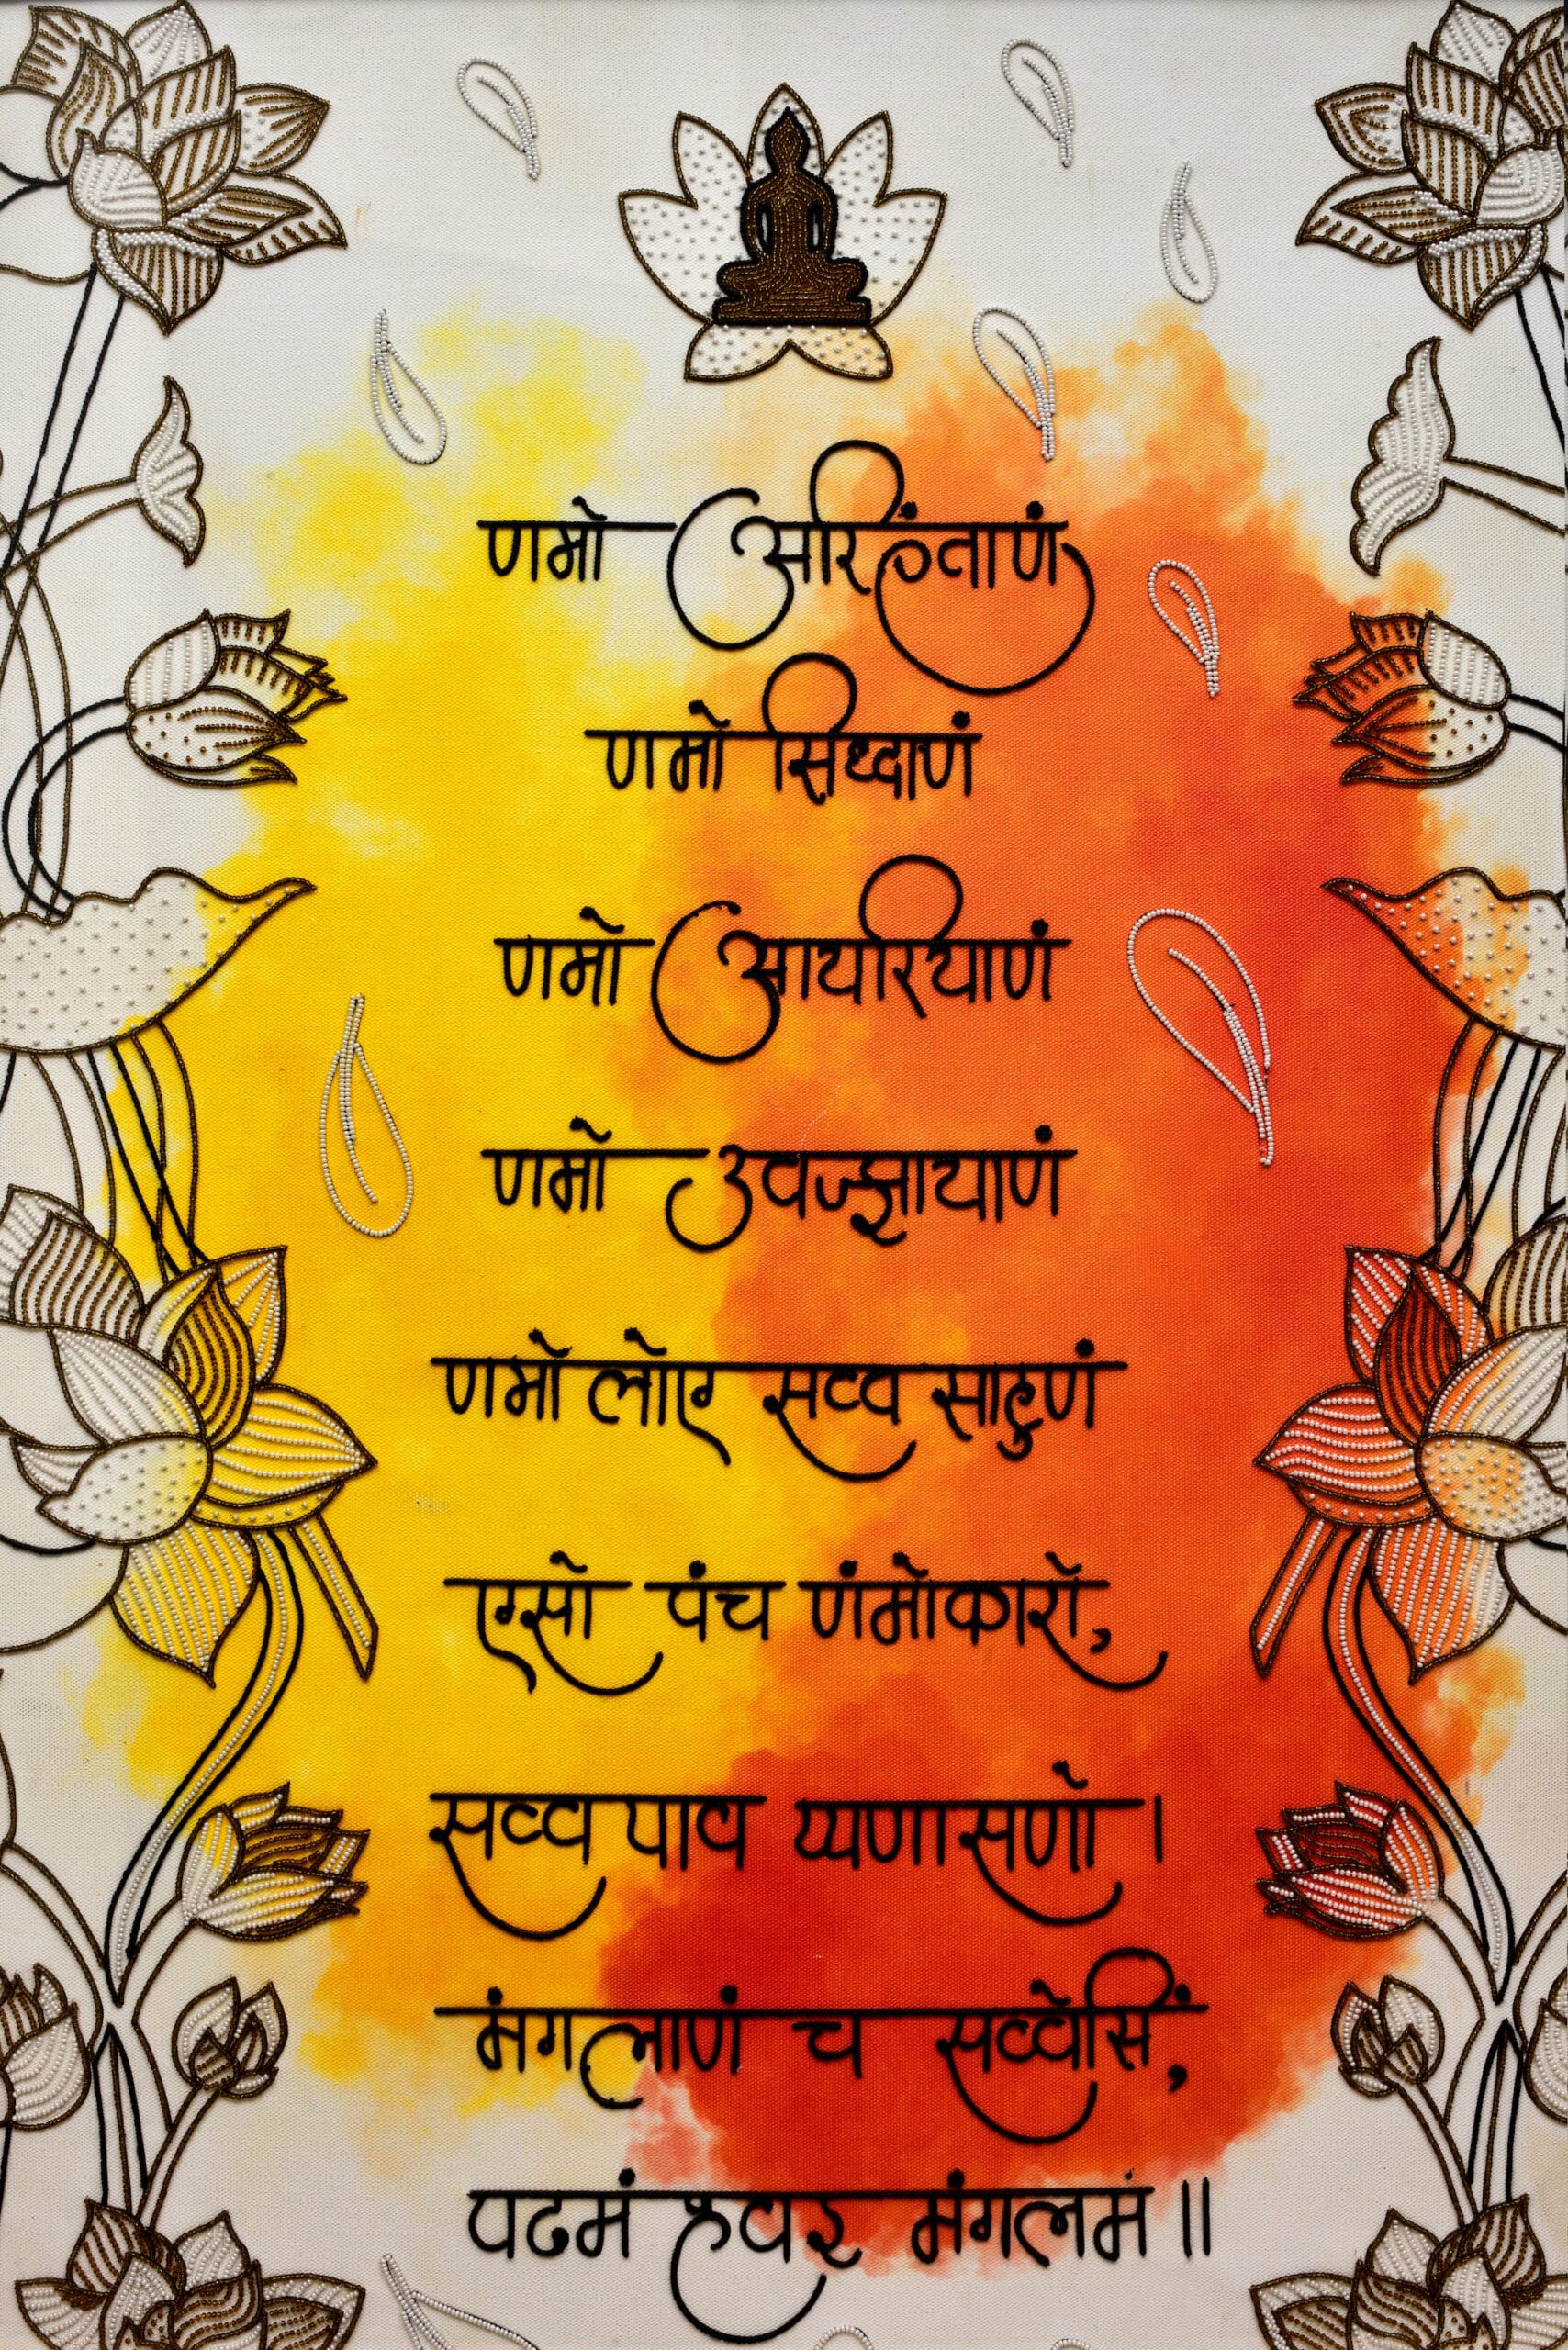 णमो अरिहंताणं
णमो सिध्दाणं
णमो आयरियाणं
णमो उवज्झायाणं
णमो लोए सव्व साहुणं
एसो पंच णंमोकारो,
सव्व पाव प्पणासणो ।
मंगलाणं च सव्वेसिं,
पढमं हवइ मंगलमं ॥